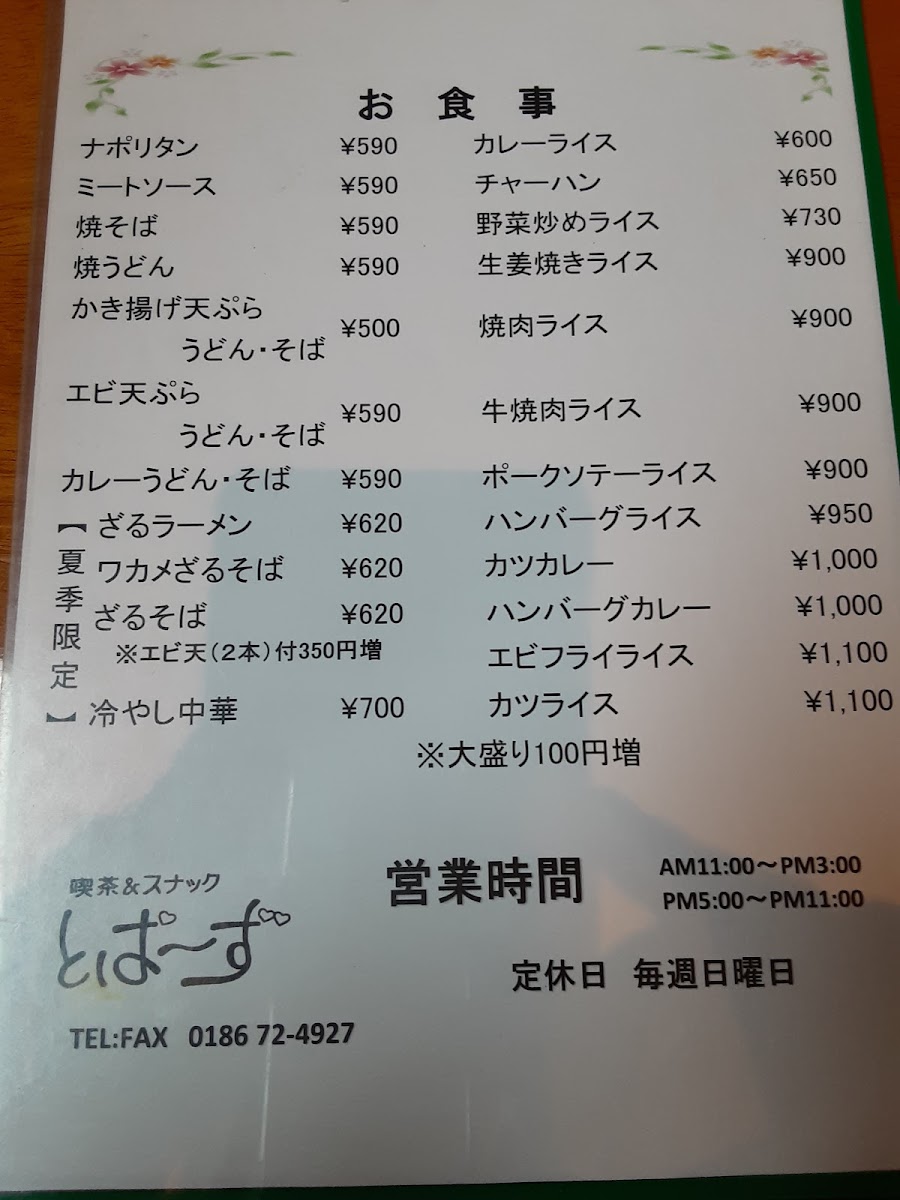 お食事
ナポリタン ¥590
ミートソース ¥590
焼そば ¥590
焼うどん ¥590
かき揚げ天ぷら
うどん・そば ¥500
エビ天ぷら
うどん・そば ¥590
カレーうどん・そば ¥590
【夏季限定】
ざるラーメン ¥620
ワカメざるそば ¥620
ざるそば ¥620
※エビ天(2本)付350円増
冷やし中華 ¥700
カレーライス ¥600
チャーハン ¥650
野菜炒めライス ¥730
生姜焼きライス ¥900
焼肉ライス ¥900
牛焼肉ライス ¥900
ポークソテーライス ¥900
ハンバーグライス ¥950
カツカレー ¥1,000
ハンバーグカレー ¥1,000
エビフライライス ¥1,100
カツライス ¥1,100
※大盛り100円増
喫茶&スナック
とぱ〜ず
TEL:FAX 0186 72-4927
営業時間 AM11:00〜PM3:00
PM5:00〜PM11:00
定休日 毎週日曜日